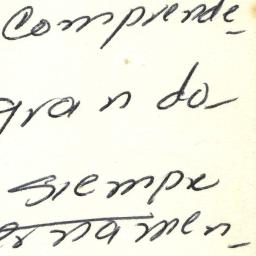 Comprende_
gran do_
siempre
ernamen_